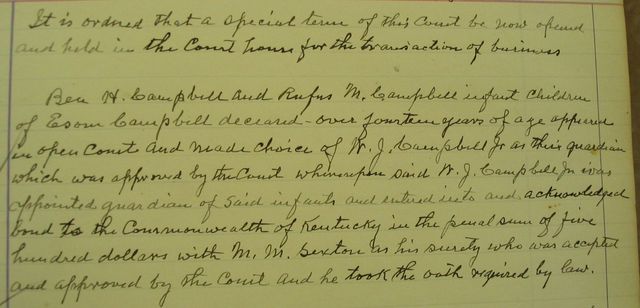 It is ordred that a special term of this Court be now opened
and held in the Court house for the transaction of business
Ben H. Campbell and Rufus M. Campbell infant children
of Esom Campbell deceased - over fourteen years of age appeared
in open Court and made choice of W. J. Campbell Jr as their guardian
which was approved by the Court whereupon said W. J. Campbell Jr was
appointed guardian of said infants and entered into and acknowledged
bond to the Commonwealth of Kentucky in the penal sum of five
hundred dollars with M. M. Sexton as his surety who was accepted
and approved by the Court and he took the oath required by law.